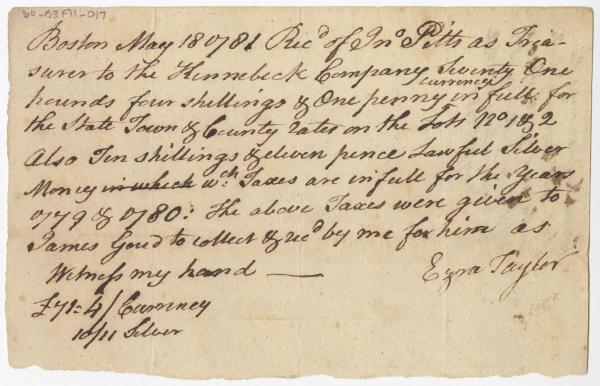 60-B3F11-D17
Boston May 18 1781 Rec'd of Jno Pitts as Trea-
surer to the Kennebeck Company Seventy One
Currency
pounds four shillings & One penny in full for
the State Town & County rates on the Lots No 1 & 2
Also Ten shillings & eleven pence Lawful Silver
Money in which wch. Taxes are in full for the Years
1779 & 1780: The above Taxes were given to
James Goud to collect & rec'd by me for him as
Witness my hand —
Ezra Taylor
£71=4/ Currency
10/11 Silver